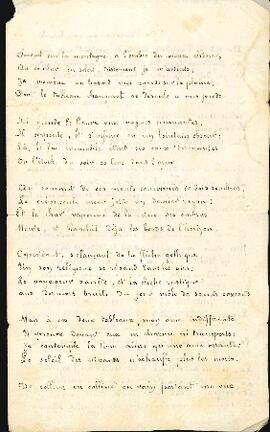 Souvent sur la montagne, à l'ombre du vieux chêne,
Au coucher du soleil, tristement je m'assieds;
Je promène au hasard mes regards sur la plaine,
Dont le tableau changeant se déroule à mes pieds.
Ici gronde le fleuve aux vagues écumantes,
Il serpente, et s'enfonce en un lointain obscur;
Là, le lac immobile étend ses eaux dormantes
Où l'étoile du soir se lève dans l'azur.
Au sommet de ces monts couronnés de bois sombres,
Le crépuscule encor jette un dernier rayon;
Et le char vaporeux de la reine des ombres
Monte, et blanchit déjà les bords de l'horizon.
Cependant, s'élançant de la flèche gothique,
Un son religieux se répand dans les airs;
Le voyageur s'arrête, et la cloche rustique
Aux derniers bruits du jour mêle de saints concerts.
Mais à ces doux tableaux mon âme indifférente
N'éprouve devant eux ni charme ni transports;
Je contemple la terre ainsi qu'une
Le soleil des vivants n'échauffe plus les morts.
De colline en colline en vain portant ma vue,